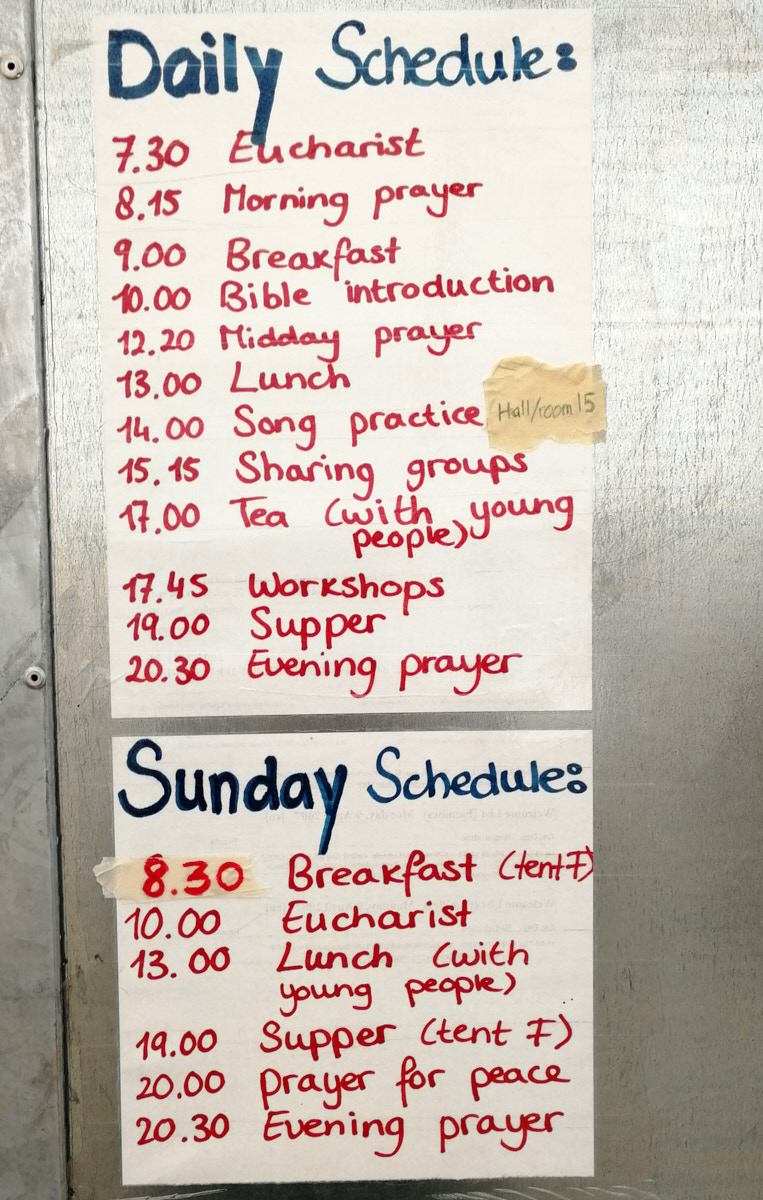 Daily Schedule:
7.30 Eucharist
8.15 Morning prayer
9.00 Breakfast
10.00 Bible introduction
12.20 Midday prayer
13.00 Lunch
14.00 Song practice Hall/room 15
15.15 Sharing groups
17.00 Tea (with young
people)
17.45 Workshops
19.00 Supper
20.30 Evening prayer
Sunday Schedule:
8.30 Breakfast (tent F)
10.00 Eucharist
13.00 Lunch (with
young people)
19.00 Supper (tent F)
20.00 prayer for peace
20.30 Evening prayer